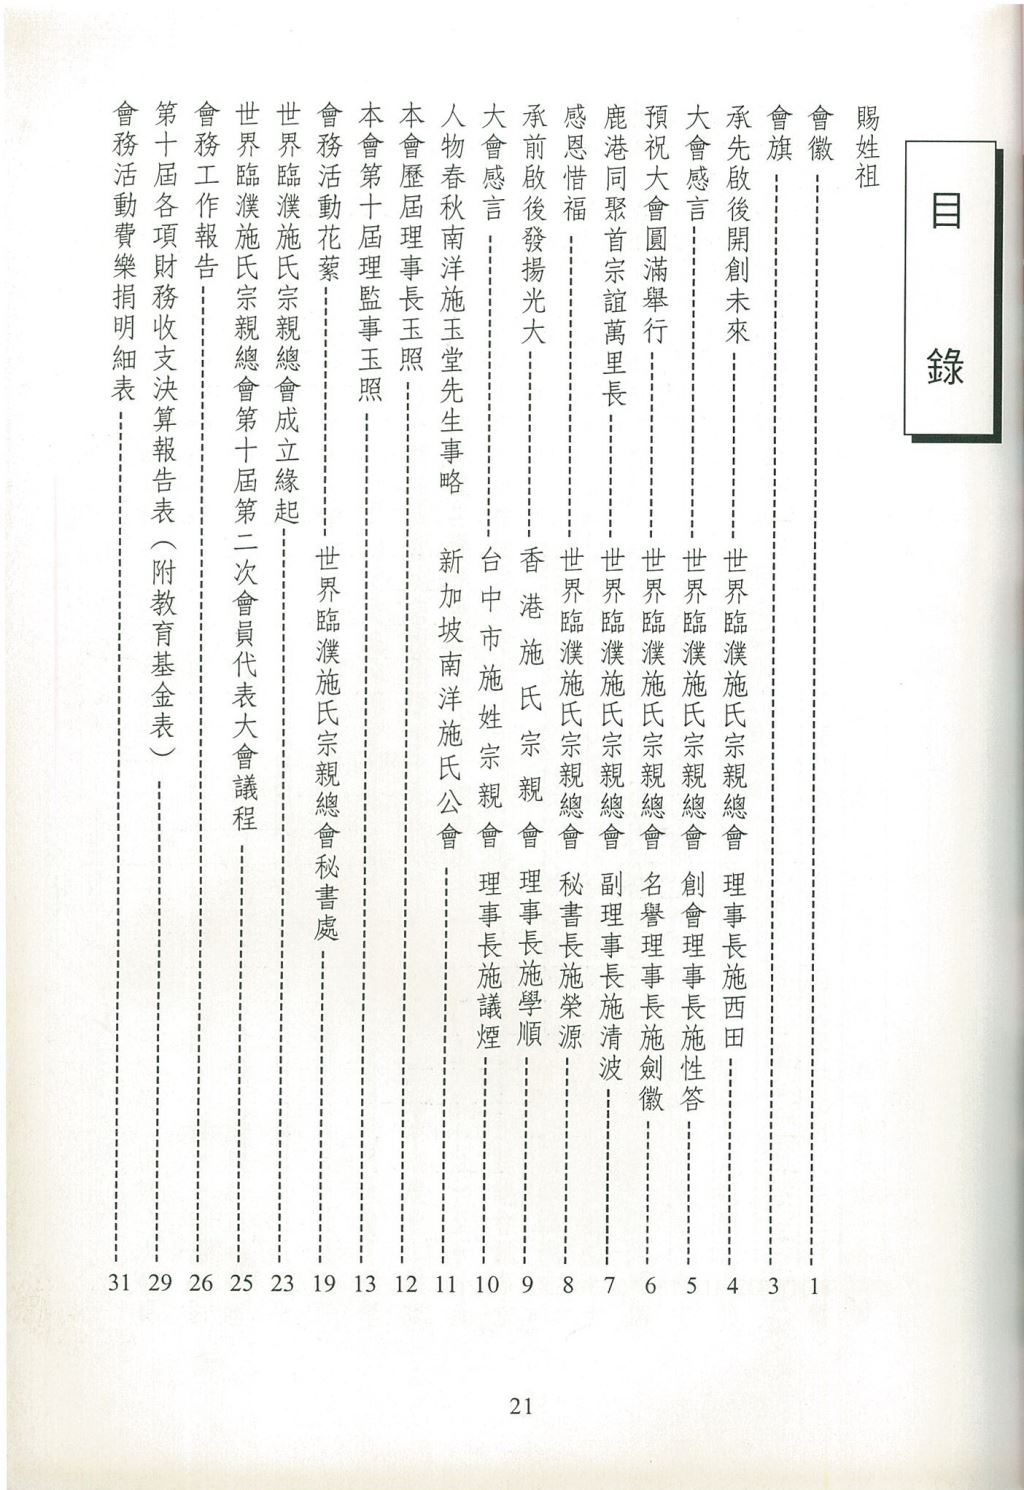 目錄
賜姓祖
會徽 1
會旗 3
承先啟後開創未來 世界臨濮施氏宗親總會 理事長施西田 4
大會感言 世界臨濮施氏宗親總會 創會理事長施性答 5
預祝大會圓滿舉行 世界臨濮施氏宗親總會 名譽理事長施劍徽 6
鹿港同聚首宗誼萬里長 世界臨濮施氏宗親總會 副理事長施清波 7
感恩惜福 世界臨濮施氏宗親總會 秘書長施榮源 8
承前啟後發揚光大 香港施氏宗親會 理事長施學順 9
大會感言 台中市施姓宗親會 理事長施議煙 10
人物春秋南洋施玉堂先生事略 新加坡南洋施氏公會 11
本會歷屆理事長玉照 12
本會第十屆理監事玉照 13
會務活動花蘂 世界臨濮施氏宗親總會秘書處 19
世界臨濮施氏宗親總會成立緣起 23
世界臨濮施氏宗親總會第十屆第二次會員代表大會議程 25
會務工作報告 26
第十屆各項財務收支決算報告表（附教育基金表） 29
會務活動費樂捐明細表 31
21